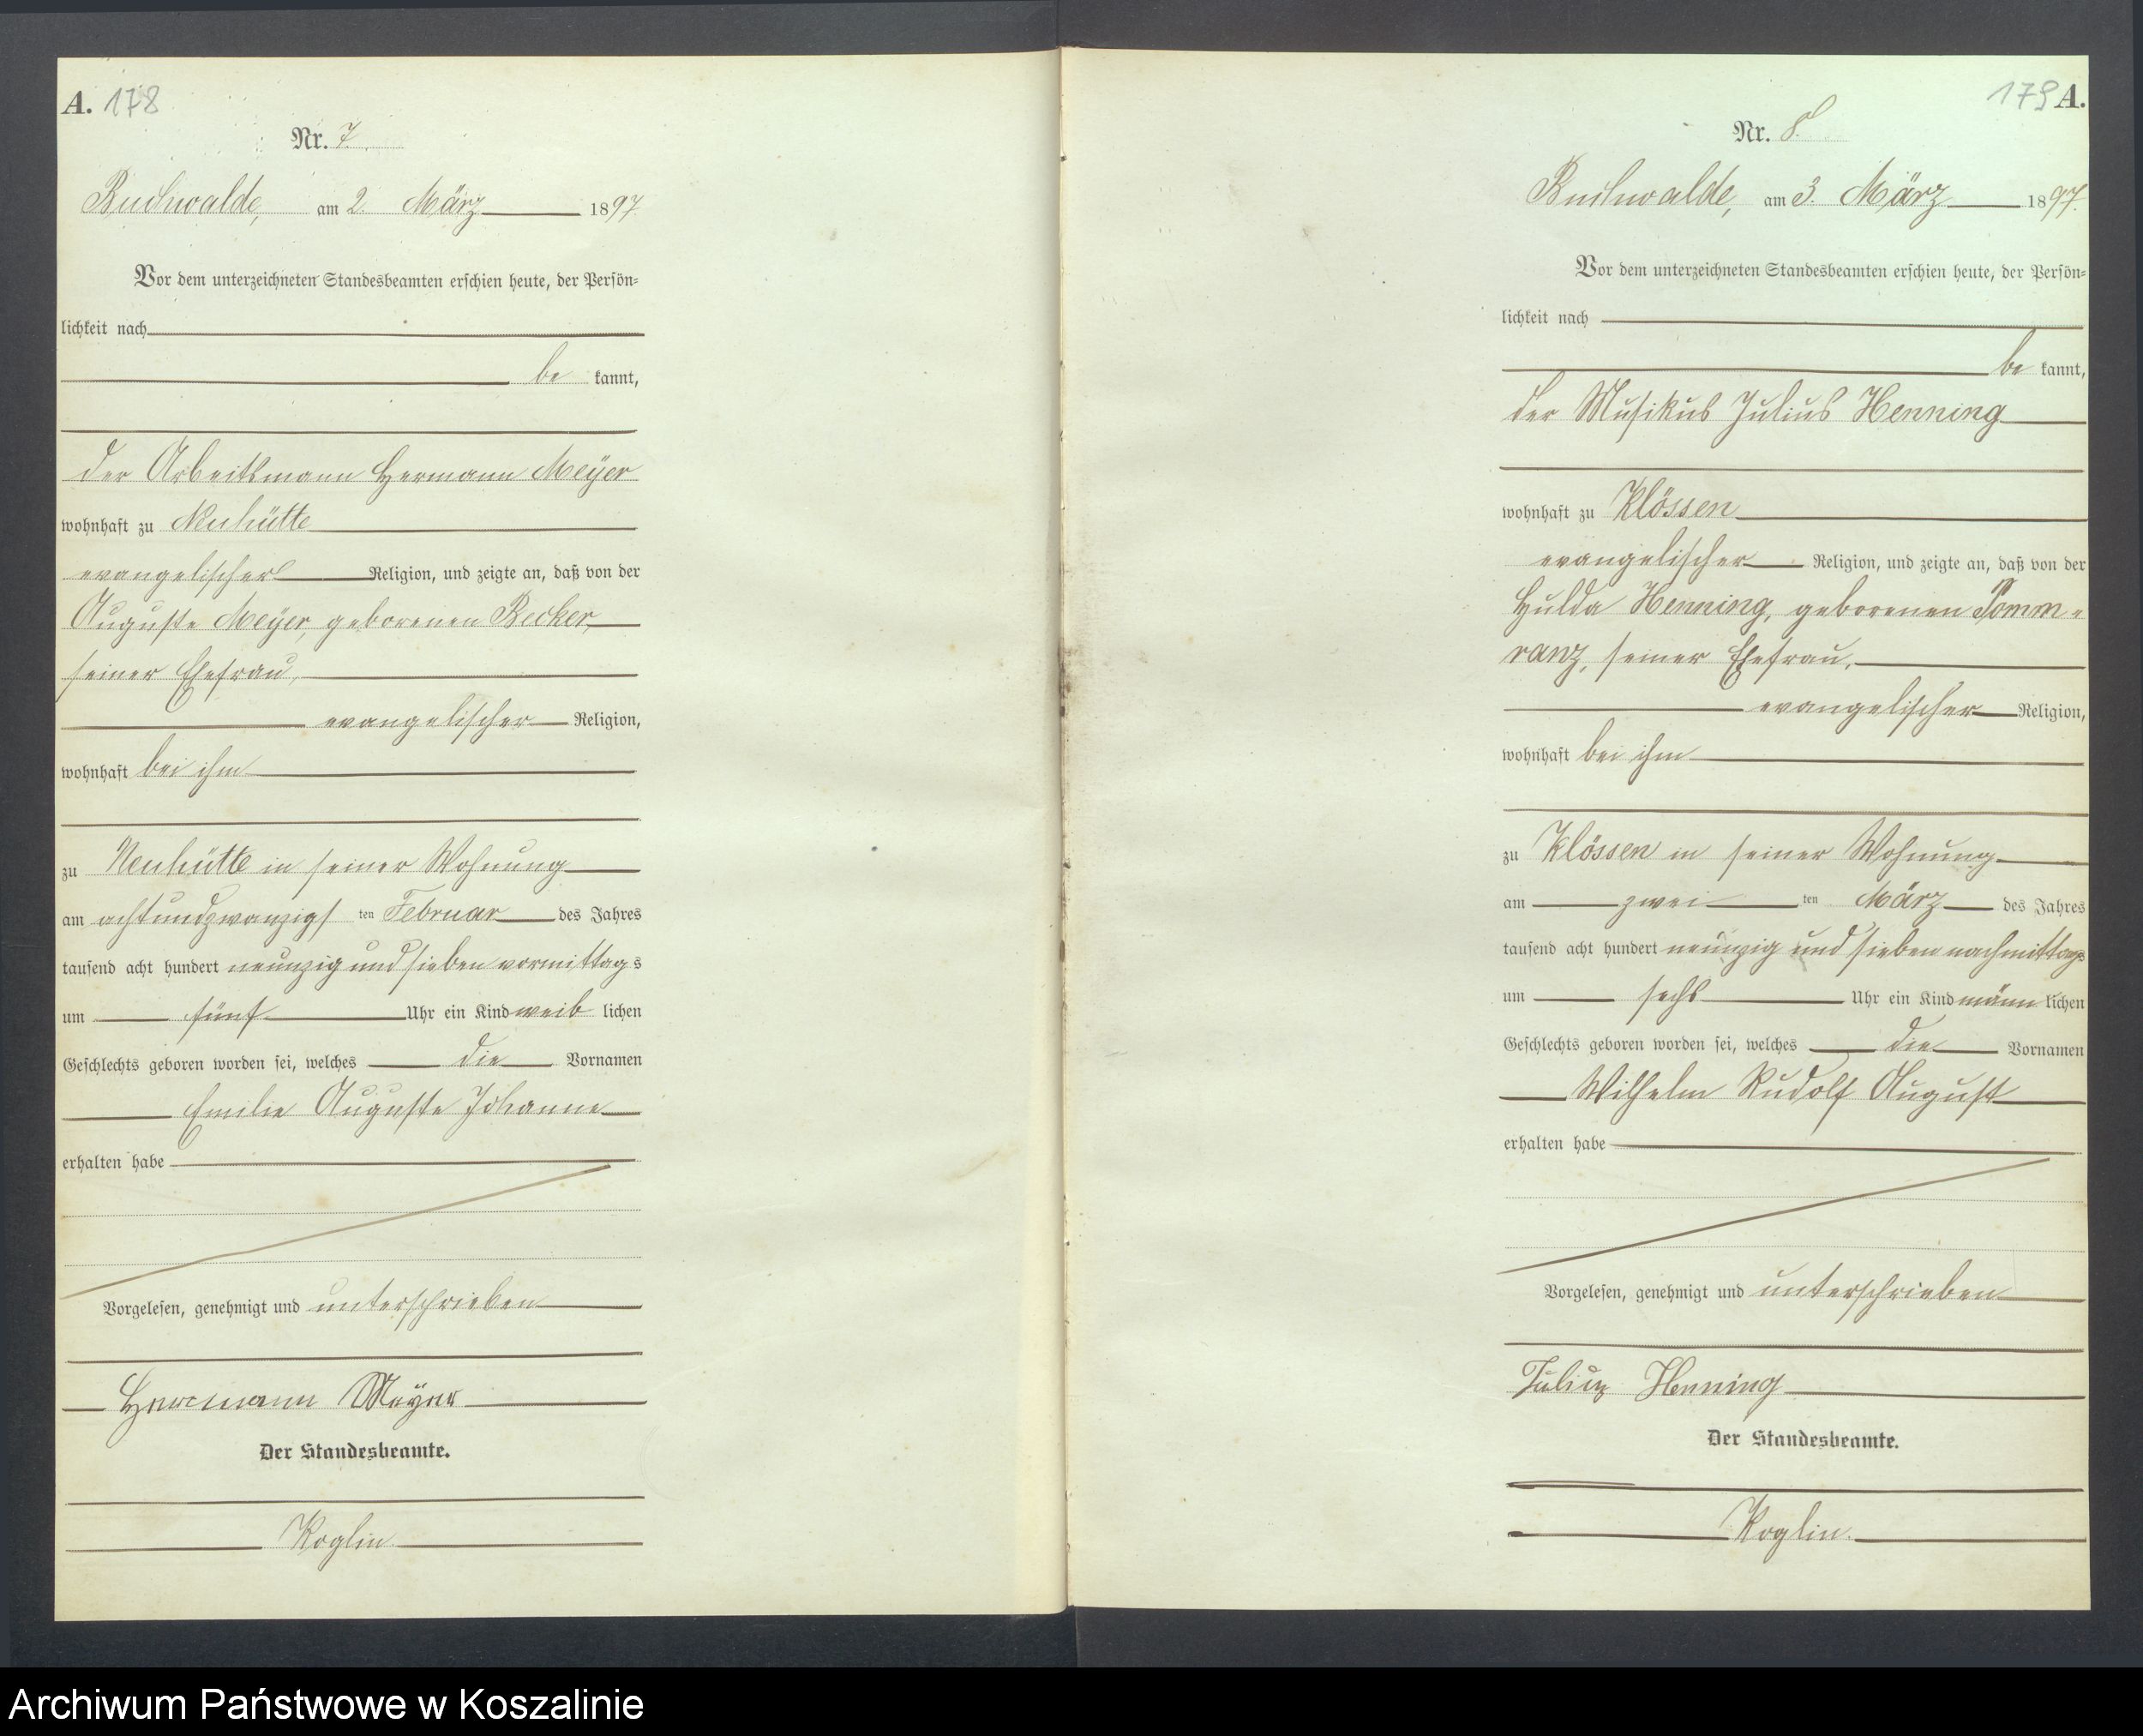 A. 178
Nr. 7.
Buchwalde, am 2. März 1897
Vor dem unterzeichneten Standesbeamten erschien heute, der Persön-
lichkeit nach
be kannt,
der Arbeitsmann Hermann Meÿer
wohnhaft zu Neuhütte
evangelischer Religion, und zeigte an, daß von der
Auguste Meÿer, geborenen Becker,
seiner Ehefrau,
evangelischer Religion,
wohnhaft bei ihm
zu Neuhütte in seiner Wohnung
am achtundzwanzigs ten Februar des Jahres
tausend acht hundert neunzig und sieben vormittags
um fünf Uhr ein Kind weib lichen
Geschlechts geboren worden sei, welches die Vornamen
Emilie Auguste Johanne
erhalten habe
Vorgelesen, genehmigt und unterschrieben
Herrmann Meÿer
Der Standesbeamte.
Koglin.
179 A.
Nr. 8.
Buchwalde, am 3. März 1897.
Vor dem unterzeichneten Standesbeamten erschien heute, der Persön-
lichkeit nach
be kannt,
der Musikus Julius Henning
wohnhaft zu Klössen
evangelischer Religion, und zeigte an, daß von der
Hulda Henning, geborenen Pomm-
ranz, seiner Ehefrau,
evangelischer Religion,
wohnhaft bei ihm
zu Klössen in seiner Wohnung
am zwei ten März des Jahres
tausend acht hundert neunzig und sieben nachmittags
um sechs Uhr ein Kind männ lichen
Geschlechts geboren worden sei, welches die Vornamen
Wilhelm Rudolf August
erhalten habe
Vorgelesen, genehmigt und unterschrieben
Julius Henning
Der Standesbeamte.
Koglin.
Archiwum Państwowe w Koszalinie